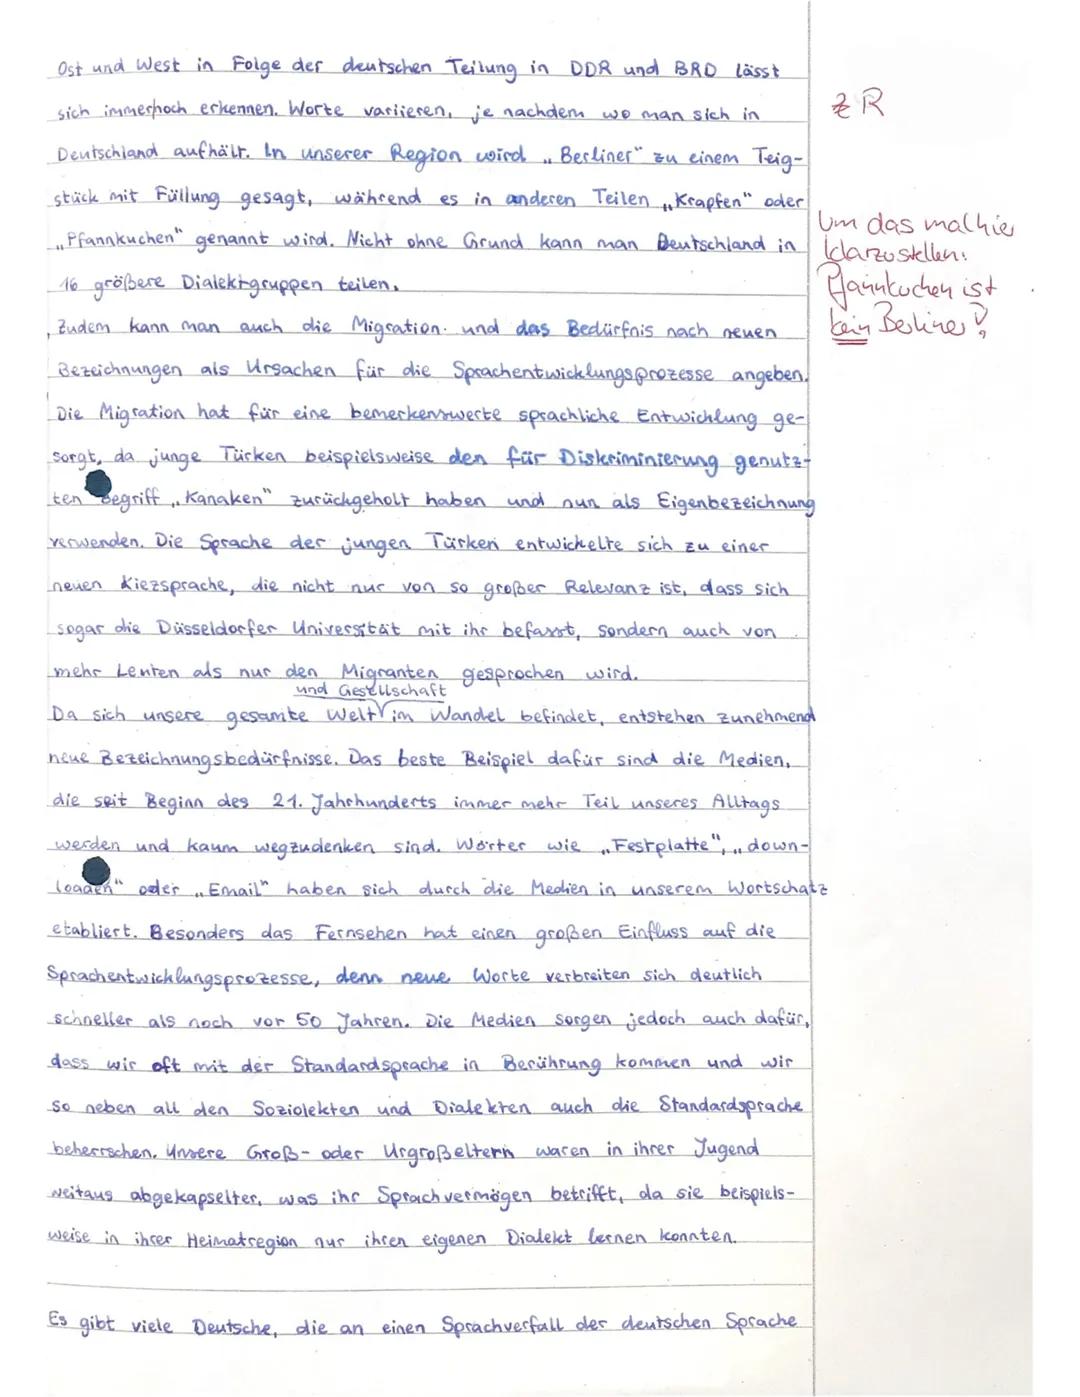 Ost und West in Folge der deutschen Teilung in DDR und BRD lässt
sich immernoch erkennen. Worte variieren, je nachdem wo man sich in
Deutschland aufhält. In unserer Region wird „Berliner" zu einem Teig-
stück mit Füllung gesagt, während es in anderen Teilen „Krapfen" oder
„Pfannkuchen" genannt wird. Nicht ohne Grund kann man Deutschland in
16 größere Dialektgruppen teilen.
Zudem kann man auch die Migration und das Bedürfnis nach neuen
Bezeichnungen als Ursachen für die Sprachentwicklungsprozesse angeben.
Die Migration hat für eine bemerkenswerte sprachliche Entwicklung ge-
sorgt, da junge Türken beispielsweise den für Diskriminierung genutz-
ten Begriff „Kanaken" zurückgeholt haben und nun als Eigenbezeichnung
verwenden. Die Sprache der jungen Türken entwickelte sich zu einer
neuen Kiezsprache, die nicht nur von so großer Relevanz ist, dass sich
sogar die Düsseldorfer Universität mit ihr befasst, sondern auch von
mehr Leuten als nur den Migranten gesprochen wird.
und Gesellschaft
Da sich unsere gesamte Welt im Wandel befindet, entstehen zunehmend
neue Bezeichnungsbedürfnisse. Das beste Beispiel dafür sind die Medien,
die seit Beginn des 21. Jahrhunderts immer mehr Teil unseres Alltags
werden und kaum wegzudenken sind. Wörter wie „Festplatte", „down-
loaden" oder „Email" haben sich durch die Medien in unserem Wortschatz
etabliert. Besonders das Fernsehen hat einen großen Einfluss auf die
Sprachentwicklungsprozesse, denn neue Worte verbreiten sich deutlich
schneller als noch vor 50 Jahren. Die Medien sorgen jedoch auch dafür,
dass wir oft mit der Standardsprache in Berührung kommen und wir
so neben all den Soziolekten und Dialekten auch die Standardsprache
beherrschen. Unsere Groß- oder Urgroßeltern waren in ihrer Jugend
weitaus abgekapselter, was ihr Sprachvermögen betrifft, da sie beispiels-
weise in ihrer Heimatregion nur ihren eigenen Dialekt lernen konnten.
Es gibt viele Deutsche, die an einen Sprachverfall der deutschen Sprache
R
Um das mal hier
klarzustellen:
Pfannkuchen ist
kein Berliner!